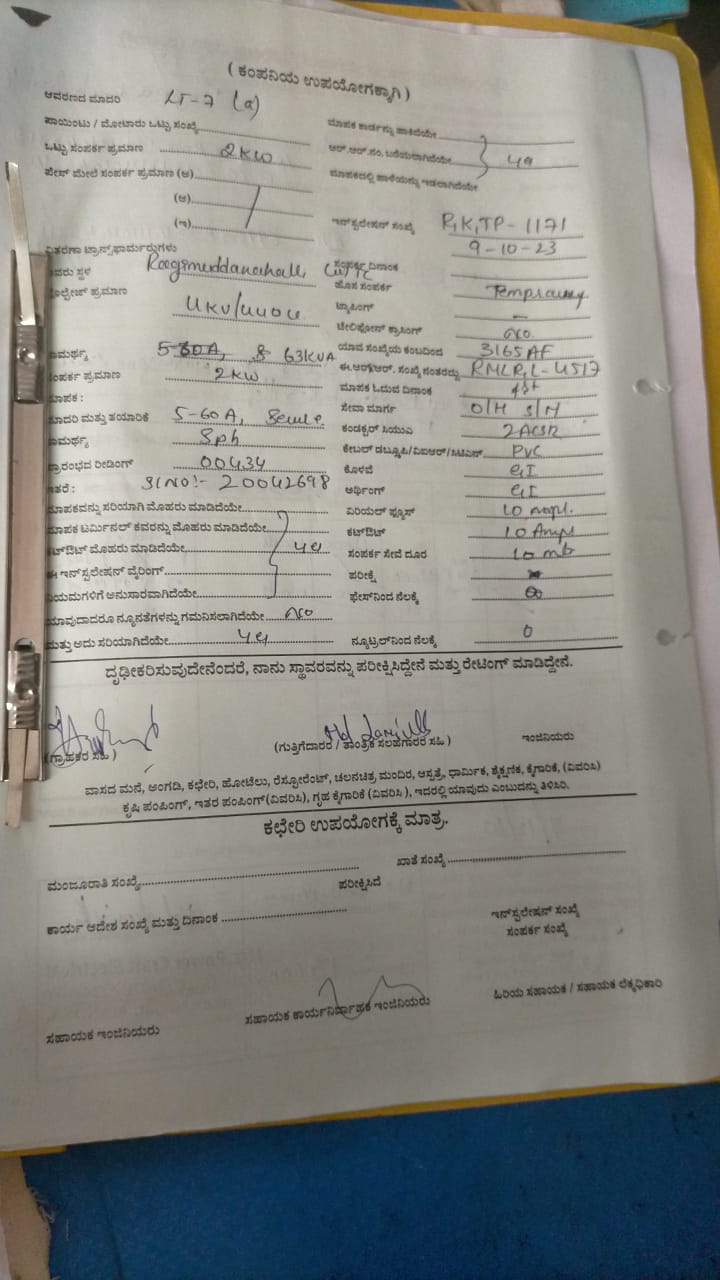 ( ಕಂಪನಿಯ ಉಪಯೋಗಕ್ಕಾಗಿ )
ಆವರಣದ ಮಾದರಿ LT-7 (a)
ಪಾಯಿಂಟು / ಮೋಟಾರು ಒಟ್ಟು ಸಂಖ್ಯೆ
ಮಾಪಕ ಕಾರ್ಡನ್ನು ಹಾಕಿದೆಯೇ
ಒಟ್ಟು ಸಂಪರ್ಕ ಪ್ರಮಾಣ 2KW
ಆರ್.ಆರ್.ನಂ. ಬರೆಯಲಾಗಿದೆಯೇ
ಫೇಸ್ ಮೇಲೆ ಸಂಪರ್ಕ ಪ್ರಮಾಣ (ಅ)
ಮಾಪಕದಲ್ಲಿ ಹಾಳೆಯನ್ನು ಇಡಲಾಗಿದೆಯೇ
(ಆ)
(ಇ)
ಇನ್‌ಸ್ಟಲೇಷನ್ ಸಂಖ್ಯೆ R,K,TP-1171
ವಿತರಣಾ ಟ್ರಾನ್ಸ್‌ಫಾರ್ಮರುಗಳು
9-10-23
ಸಂಪರ್ಕ ದಿನಾಂಕ
ಹೊಸ ಸಂಪರ್ಕ
ವೋಲ್ಟೇಜ್ ಪ್ರಮಾಣ
ಟ್ಯಾಪಿಂಗ್ –
ಟೆಲಿಫೋನ್ ಕ್ರಾಸಿಂಗ್ no.
ಸಾಮರ್ಥ್ಯ 63KVA
ಯಾವ ಸಂಖ್ಯೆಯ ಕಂಬದಿಂದ 3165AF
ಸಂಪರ್ಕ ಪ್ರಮಾಣ 2KW
ಈ.ಆರ್.ಆರ್. ಸಂಖ್ಯೆ ನಂತರದ್ದು RMLR,L-4517
ಮಾಪಕ :
ಮಾಪಕ ಓದುವ ದಿನಾಂಕ 1st
ಮಾದರಿ ಮತ್ತು ತಯಾರಿಕೆ 5-60A,
ಸೇವಾ ಮಾರ್ಗ O/H S/M
ಸಾಮರ್ಥ್ಯ Sph
ಕಂಡಕ್ಟರ್ ಸಿಯುಎ 2ACSR
ಪ್ರಾರಂಭದ ರೀಡಿಂಗ್ 00434
ಕೇಬಲ್ ಡಬ್ಲ್ಯೂಪಿ/ವಿಐಆರ್/ಸಿಟಿಎಸ್ PVC
ಇತರೆ : Sl NO:- 20042698
ಕೊಳವೆ GI
ಅರ್ಥಿಂಗ್ GI
ಮಾಪಕವನ್ನು ಸರಿಯಾಗಿ ಮೊಹರು ಮಾಡಿದೆಯೇ
ಏರಿಯಲ್ ಫ್ಯೂಸ್ 10
ಮಾಪಕ ಟರ್ಮಿನಲ್ ಕವರನ್ನು ಮೊಹರು ಮಾಡಿದೆಯೇ
ಕಟ್‌ಔಟ್ 10
ಕಟ್‌ಔಟ್ ಮೊಹರು ಮಾಡಿದೆಯೇ
ಸಂಪರ್ಕ ಸೇವೆ ದೂರ 10
ಈ ಇನ್‌ಸ್ಟಲೇಷನ್ ವೈರಿಂಗ್
ಪರೀಕ್ಷೆ
ನಿಯಮಗಳಿಗೆ ಅನುಸಾರವಾಗಿದೆಯೇ
ಫೇಸ್‌ನಿಂದ ನೆಲಕ್ಕೆ
ಯಾವುದಾದರೂ ನ್ಯೂನತೆಗಳನ್ನು ಗಮನಿಸಲಾಗಿದೆಯೇ no
ಮತ್ತು ಅದು ಸರಿಯಾಗಿದೆಯೇ
ನ್ಯೂಟ್ರಲ್‌ನಿಂದ ನೆಲಕ್ಕೆ 0
ದೃಢೀಕರಿಸುವುದೇನೆಂದರೆ, ನಾನು ಸ್ಥಾವರವನ್ನು ಪರೀಕ್ಷಿಸಿದ್ದೇನೆ ಮತ್ತು ರೇಟಿಂಗ್ ಮಾಡಿದ್ದೇನೆ.
(ಗ್ರಾಹಕರ ಸಹಿ )
(ಗುತ್ತಿಗೆದಾರರ / ತಾಂತ್ರಿಕ ಸಲಹೆಗಾರರ ಸಹಿ )
ಇಂಜಿನಿಯರು
ವಾಸದ ಮನೆ, ಅಂಗಡಿ, ಕಛೇರಿ, ಹೋಟೆಲು, ರೆಸ್ಟೋರೆಂಟ್, ಚಲನಚಿತ್ರ, ಮಂದಿರ, ಆಸ್ಪತ್ರೆ, ಧಾರ್ಮಿಕ, ಶೈಕ್ಷಣಿಕ, ಕೈಗಾರಿಕೆ, (ವಿವರಿಸಿ)
ಕೃಷಿ ಪಂಪಿಂಗ್, ಇತರ ಪಂಪಿಂಗ್ (ವಿವರಿಸಿ), ಗೃಹ ಕೈಗಾರಿಕೆ (ವಿವರಿಸಿ ), ಇದರಲ್ಲಿ ಯಾವುದು ಎಂಬುದನ್ನು ತಿಳಿಸಿರಿ.
ಕಛೇರಿ ಉಪಯೋಗಕ್ಕೆ ಮಾತ್ರ.
ಮಂಜೂರಾತಿ ಸಂಖ್ಯೆ
ಖಾತೆ ಸಂಖ್ಯೆ
ಪರೀಕ್ಷಿಸಿದೆ
ಕಾರ್ಯ ಆದೇಶ ಸಂಖ್ಯೆ ಮತ್ತು ದಿನಾಂಕ
ಇನ್‌ಸ್ಟಲೇಷನ್ ಸಂಖ್ಯೆ
ಸಂಪರ್ಕ ಸಂಖ್ಯೆ
ಸಹಾಯಕ ಇಂಜಿನಿಯರು
ಸಹಾಯಕ ಕಾರ್ಯನಿರ್ವಾಹಕ ಇಂಜಿನಿಯರು
ಹಿರಿಯ ಸಹಾಯಕ / ಸಹಾಯಕ ಲೆಕ್ಕಾಧಿಕಾರಿ